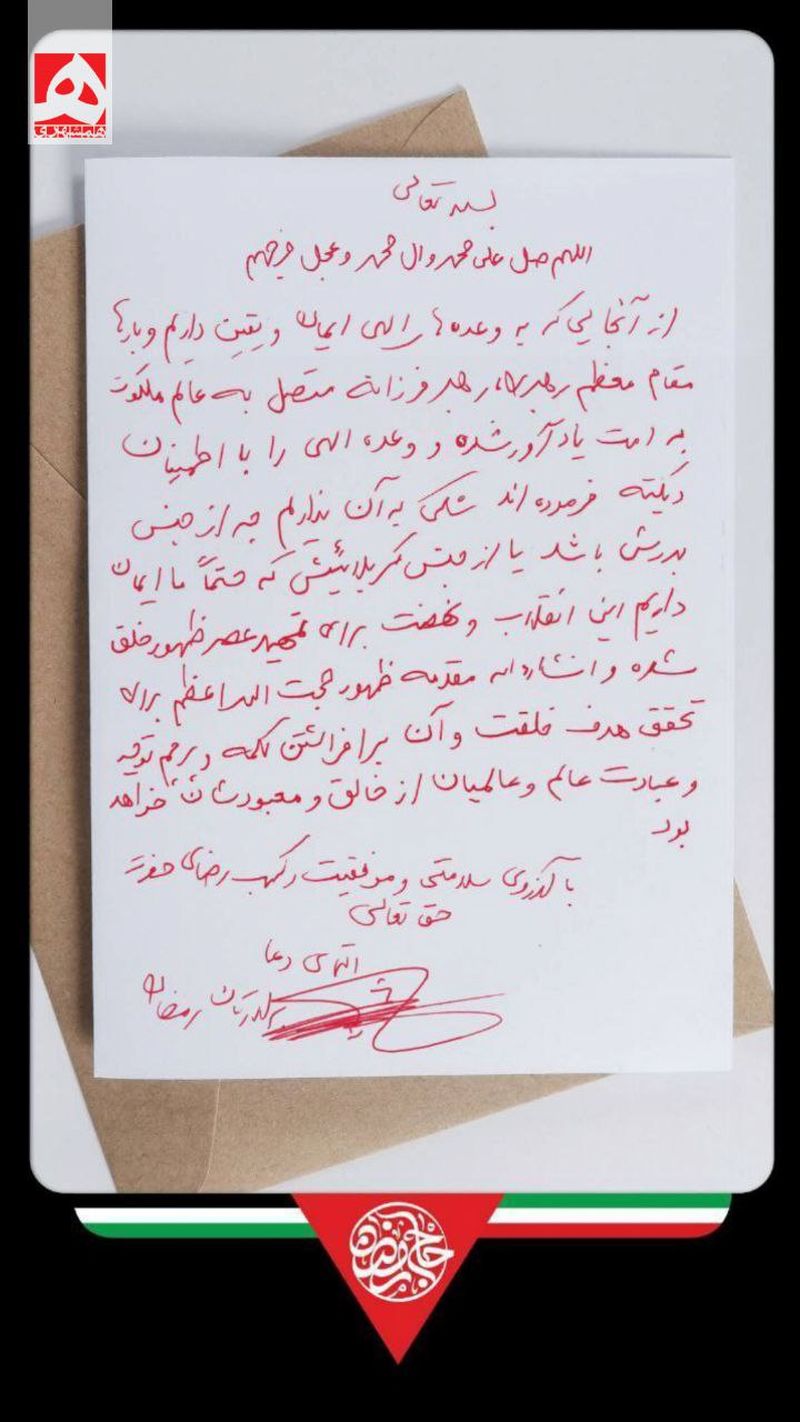 بسمه تعالی
اللهم صل علی محمد و ال محمد و عجل فرجهم
از آنجایی که به وعده های الهی ایمان و یقین داریم و بارها
مقام معظم رهبری، رهبر فرزانه متصل به عالم ملکوت
به امت یادآور شده و وعده الهی را با اطمینان
دیکته فرموده اند شکی به آن نداریم چه از جنس
بدرش باشد یا از جنس کربلائیش که حتماً ما ایمان
داریم این انقلاب و نهضت برای تمهید عصر ظهور خلق
شده و انشاءالله مقدمه ظهور حجت الله اعظم برای
تحقق هدف خلقت و آن برافراشتن کلمه و پرچم توحید
و عبادت عالم و عالمیان از خالق و معبودشان خواهد
بود
با آرزوی سلامتی و موفقیت و کسب رضای حضرت
حق تعالی
التماس دعا
برادرتان رمضان
حاج رمضان